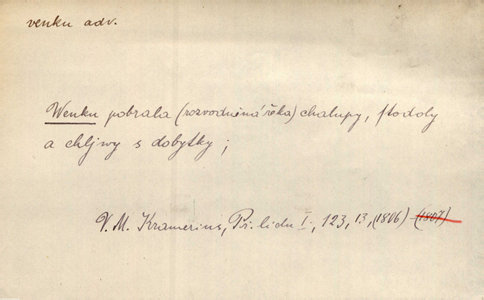 venku adv.
Wenku pobrala (rozvodněná řeka) chalupy, stodoly
a chljwy s dobytky;
V. M. Kramerius, Př. lidu I., 123, 13, (1806) (1807)